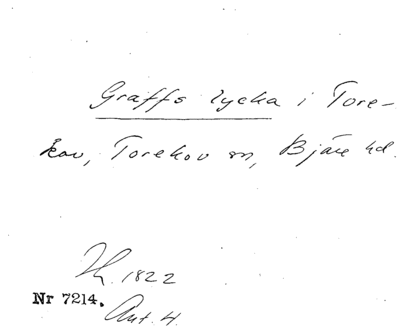 Graffs lycka i Tore-
kov, Torekov sn, Bjäre hd.
1822
Nr 7214.
Ant. 4.